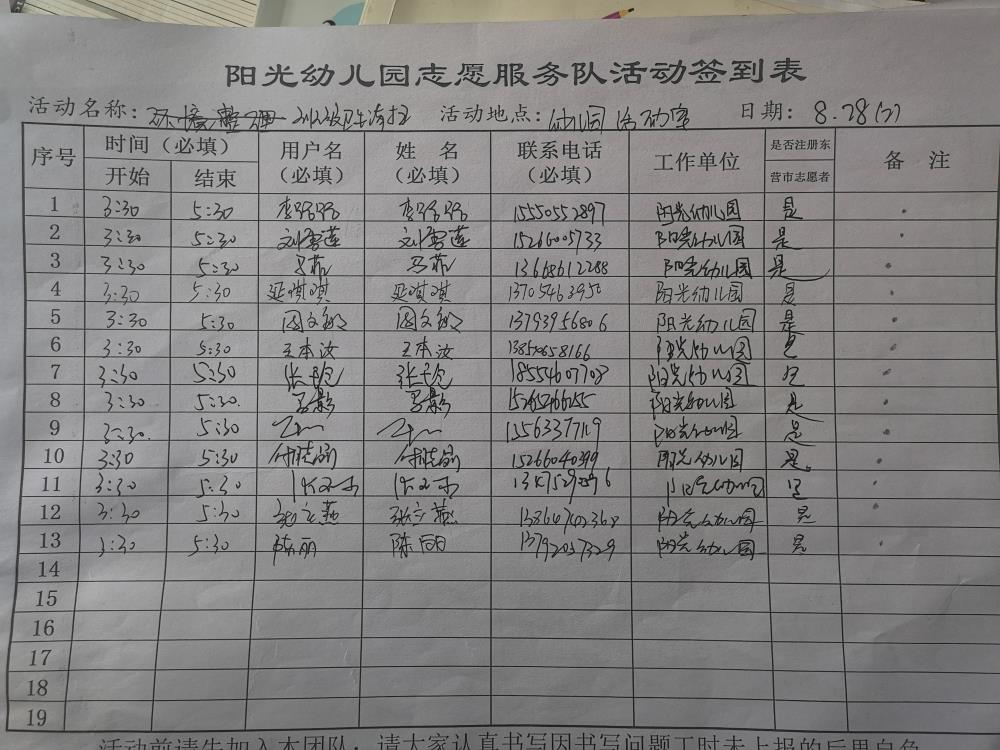 阳光幼儿园志愿服务队活动签到表
活动名称: 环境整理 班级卫生清扫 活动地点: 幼儿园活动室 日期: 8.28(2)
序号 时间（必填） 用户名 姓 名 联系电话 工作单位 是否注册东 备 注
开始 结束 （必填） （必填） （必填） 营市志愿者
1 3:30 5:30 李珍珍 李珍珍 15550552897 阳光幼儿园 是
2 3:30 5:30 刘雪莲 刘雪莲 15266005733 阳光幼儿园 是
3 3:30 5:30 马菲 马菲 13668612288 阳光幼儿园 是
4 3:30 5:30 延琪琪 延琪琪 阳光幼儿园 是
5 3:30 5:30 13793956806 阳光幼儿园 是
6 3:30 5:30 王本汝 王本汝 阳光幼儿园 是
7 3:30 5:30 18554607708 阳光幼儿园 是
8 3:30 5:30 马影 马影 阳光幼儿园 是
9 3:30 5:30 阳光幼儿园 是
10 3:30 5:30 阳光幼儿园 是
11 3:30 5:30 阳光幼儿园 是
12 3:30 5:30 阳光幼儿园 是
13 3:30 5:30 陈丽 陈丽 13792037329 阳光幼儿园 是
14
15
16
17
18
19
活动前请先加入本团队；请大家认真书写因书写问题工时未上报的后果自负